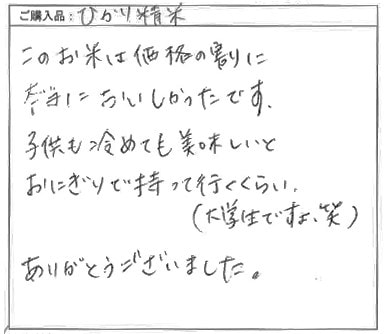 ご購入品：ひかり精米
このお米は価格の割りに
本当においしかったです。
子供も冷めても美味しいと
おにぎりで持って行くくらい。
（大学生ですよ、笑）
ありがとうございました。